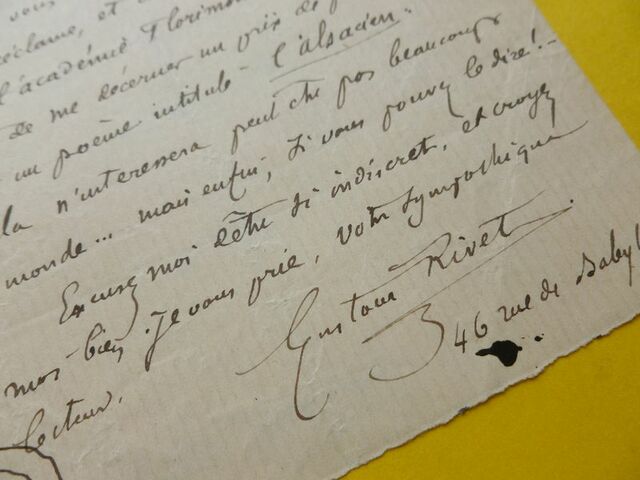 vous
réclame, et
l'académie Florimon
de me décerner un prix de p
un poème intitulé - l'alsacien.
la n'interessera peut être pas beaucoup
monde... mais enfin, si vous pouvez le dire! -
Excusez moi d'être si indiscret, et croyez
moi bien, je vous prie, votre sympathique
lecteur.
Gustave Rivet
46 rue de Babyl